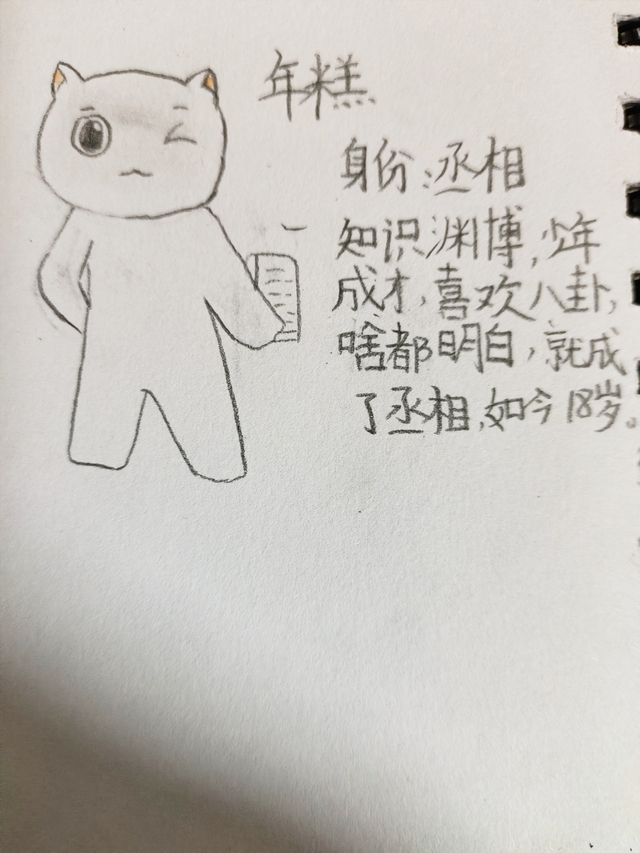 年糕
身份:丞相
知识渊博,少年
成才,喜欢八卦,
啥都明白,就成
了丞相,如今18岁。